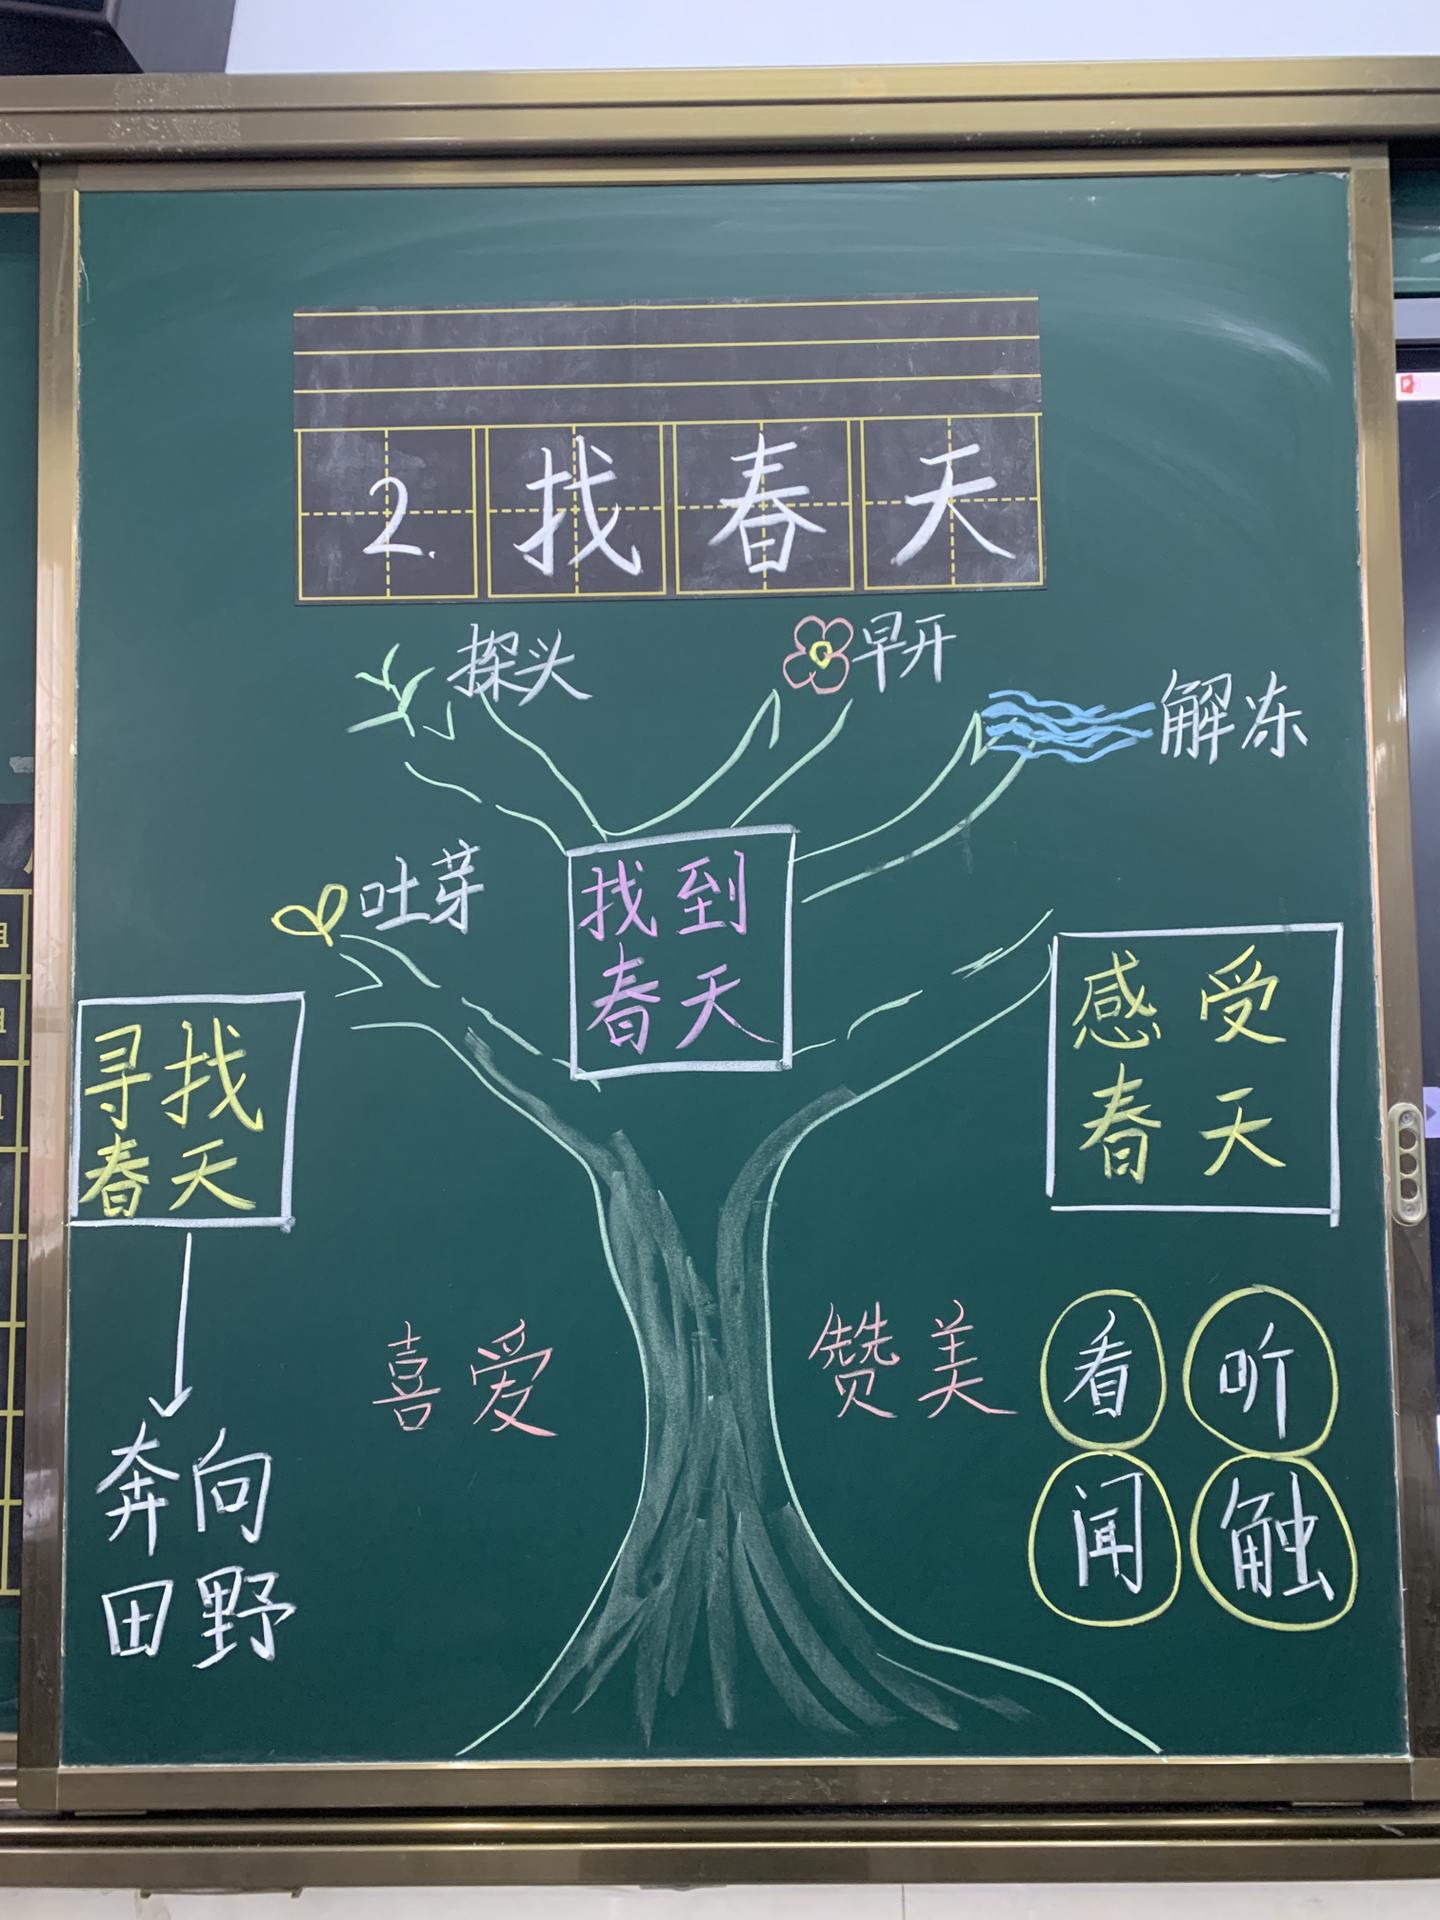 2. 找春天
探头
早开
解冻
吐芽
找到
春天
寻找
春天
感受
春天
奔向
田野
喜爱
赞美
看 听
闻 触